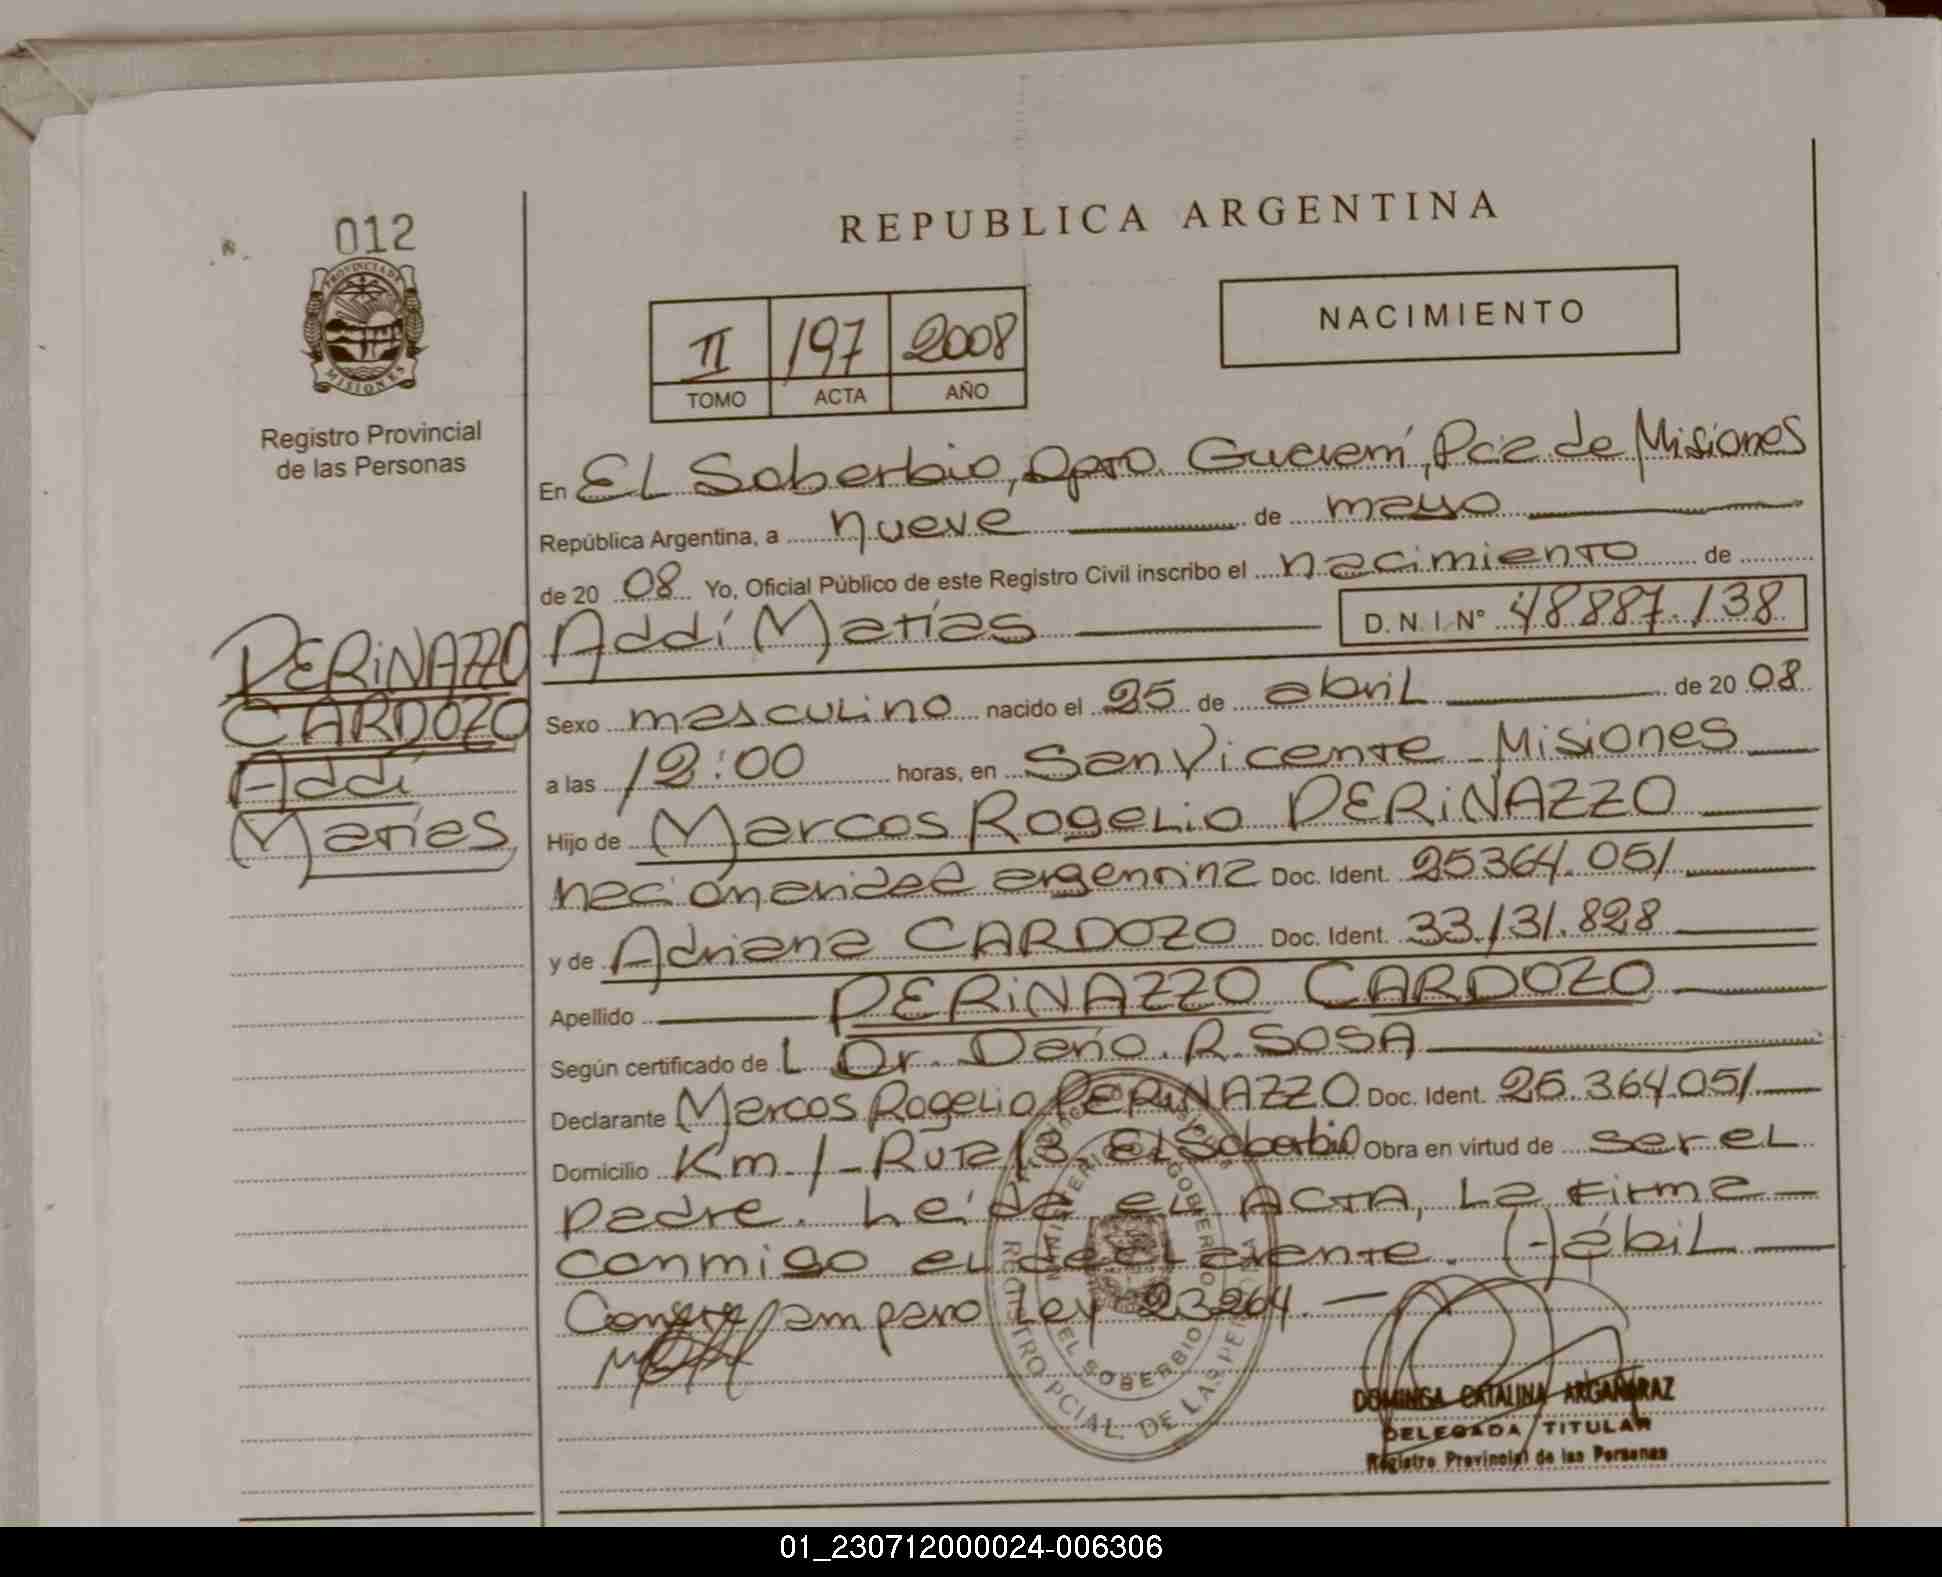 012
PROVINCIA DE
MISIONES
Registro Provincial
de las Personas
PERiNAZZO
CARDOZO
Addí
Matías
REPUBLICA ARGENTINA
II 197 2008
TOMO ACTA AÑO
NACIMIENTO
En EL Soberbio, Dpto. Guaraní, Pcia de Misiones
República Argentina, a nueve de mayo
de 20 08 Yo, Oficial Público de este Registro Civil inscribo el nacimiento de
Addí Matías D.N.I. Nº 48887.138
Sexo masculino nacido el 25 de abril de 20 08
a las 12:00 horas, en San Vicente Misiones
Hijo de Marcos Rogelio PERiNAZZO
nacionalidad argentina Doc. Ident. 25364.051
y de Adriana CARDOZO Doc. Ident. 33.131.828
Apellido PERiNAZZO CARDOZO
Según certificado de L Dr. Darío. R. SOSA
Declarante Marcos Rogelio PERiNAZZO Doc. Ident. 25.364.051
Domicilio Km. 1 - Ruta 13. El Soberbio Obra en virtud de ser el
padre. Leída el ACTA, la firma
conmigo el declarante. Hábil
Conste/amparo Ley 23264.
MINISTERIO GOBIERNO
EL SOBERBIO
REGISTRO PCIAL. DE LAS PERSONAS
DOMINGA CATALINA ARGAÑARAZ
DELEGADA TITULAR
Registro Provincial de las Personas
01_230712000024-006306